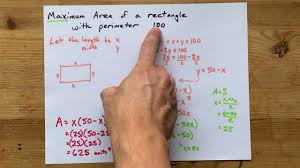 Maximum Area of a rectangle
with perimeter 100
Let the length be x
width y
+ x + y = 100
2y = 100 - 2x
2 2 2
x
y y
x
y = 50 - x
A = x(50 - x)
= (25)(50 - 25)
= (25)(25)
= 625 units²
x = 50
= 25